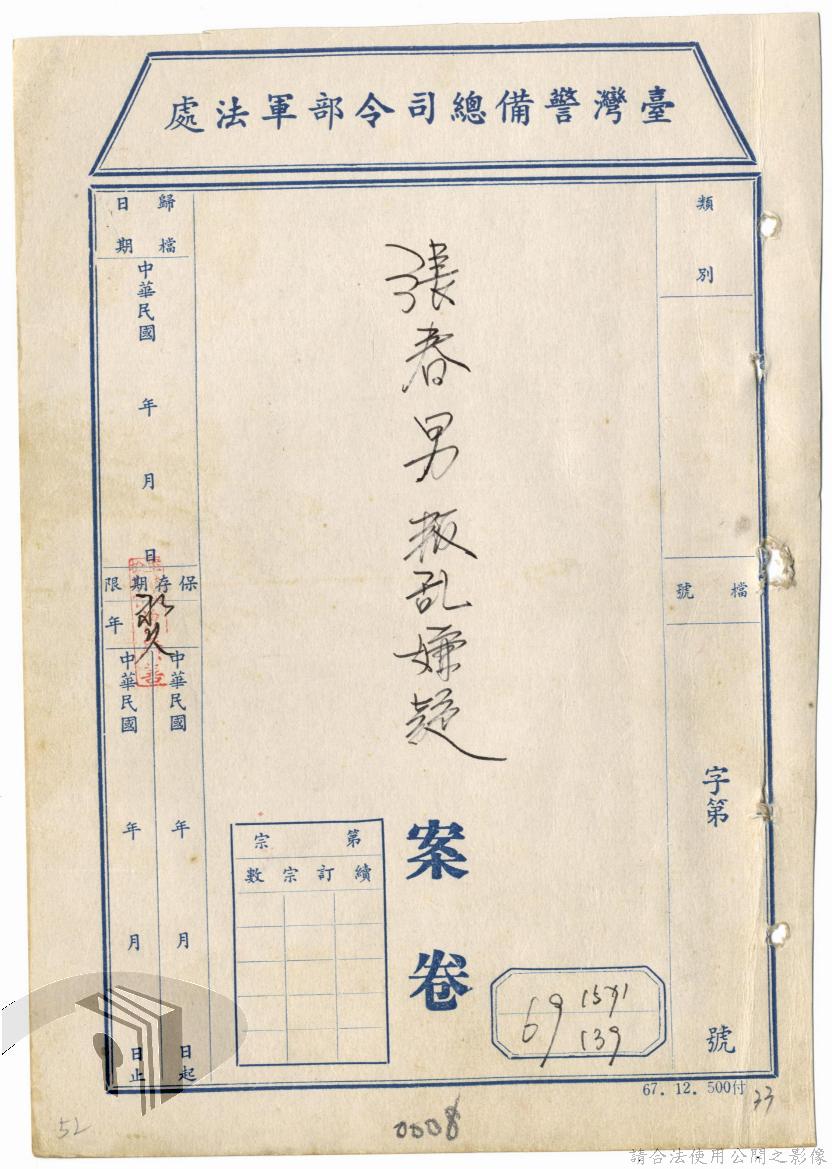 臺灣警備總司令部軍法處
類別
檔號
字第
號
張春男叛乱嫌疑
案卷
第宗
續訂宗數
69
1571
139
歸檔日期
中華民國 年 月 日
保存期限
永久
年
中華民國 年 月 日起
中華民國 年 月 日止
67. 12. 500付
33
52
0008
請合法使用公開之影像